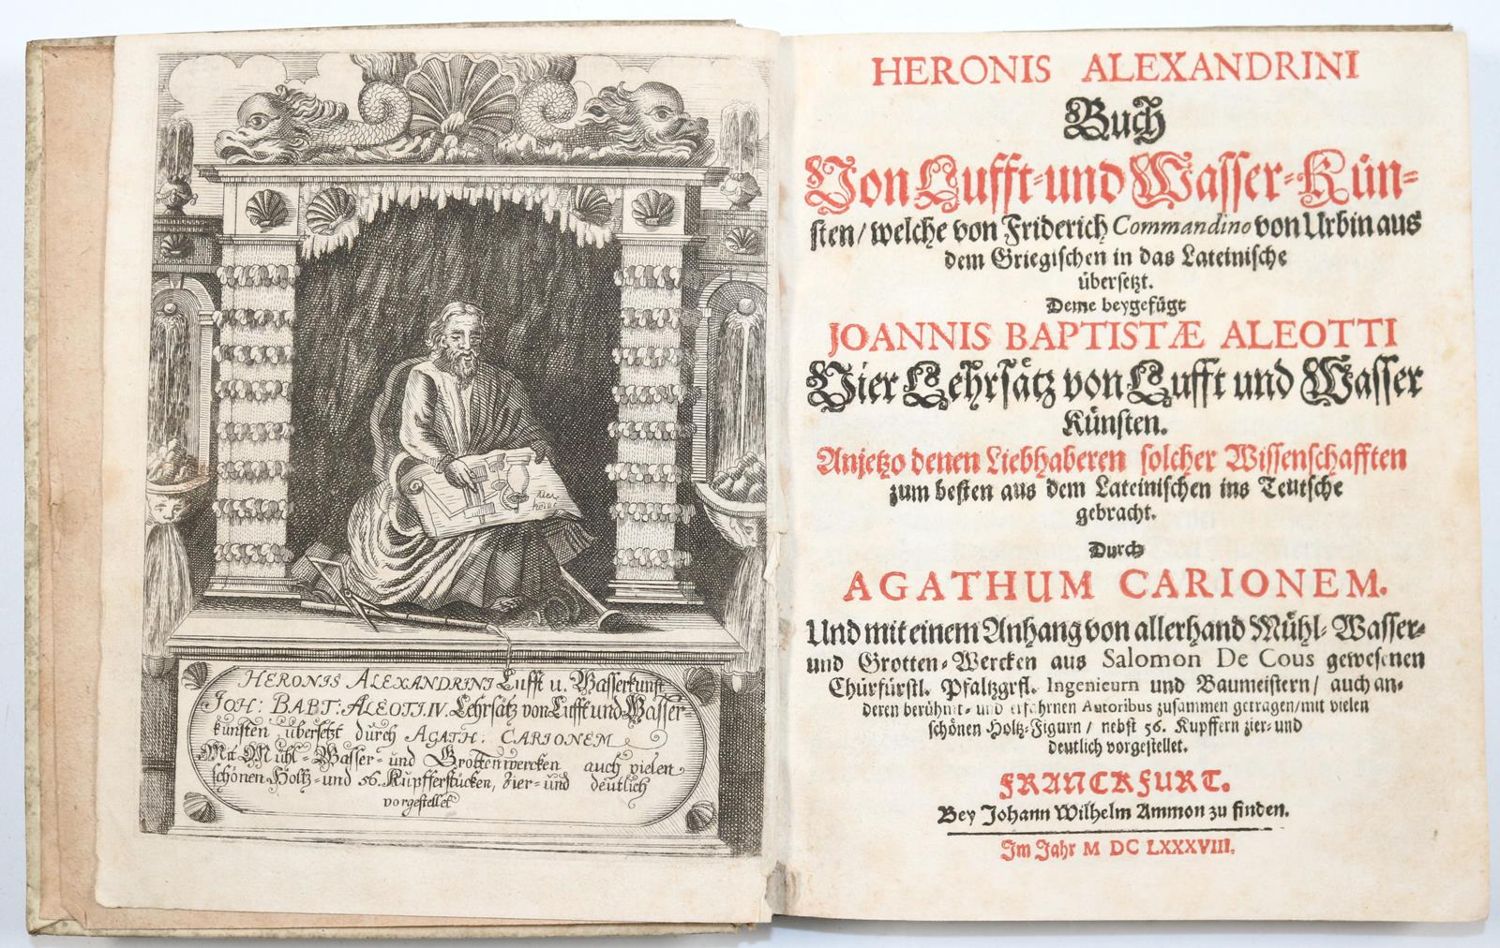 Nero
heron
HERONIS ALEXANDRINI Lufft u. Wasserkunst
JOH: BABT: ALEOTI. IV. Lehrsätz von Lufft und Wasser-
künsten, übersetzt durch AGATH: CARIONEM
Mit Mühl-Wasser- und Grottenwercken auch vielen
schönen Holtz- und 56. Kupfferstücken, Zier- und deutlich
vorgestellet
HERONIS ALEXANDRINI
Buch
Von Lufft- und Wasser-Kün-
sten/ welche von Friderich Commandino von Urbin aus
dem Griegischen in das Lateinische
übersetzt.
Deme beygefügt
JOANNIS BAPTISTÆ ALEOTTI
Vier Lehrsätz von Lufft und Wasser
Künsten.
Anjetzo denen Liebhaberen solcher Wissenschafften
zum besten aus dem Lateinischen ins Teutsche
gebracht.
Durch
AGATHUM CARIONEM.
Und mit einem Anhang von allerhand Mühl-Wasser-
und Grotten-Wercken aus Salomon De Cous gewesenen
Chürfürstl. Pfaltzgrfl. Ingenieurn und Baumeistern/ auch an-
deren berühmt- und erfahrnen Autoribus zusammen getragen/ mit vielen
schönen Holtz-Figurn/ nebst 56. Kupffern zier- und
deutlich vorgestellet.
FRANCKFURT.
Bey Johann Wilhelm Ammon zu finden.
Im Jahr M DC LXXXVIII.